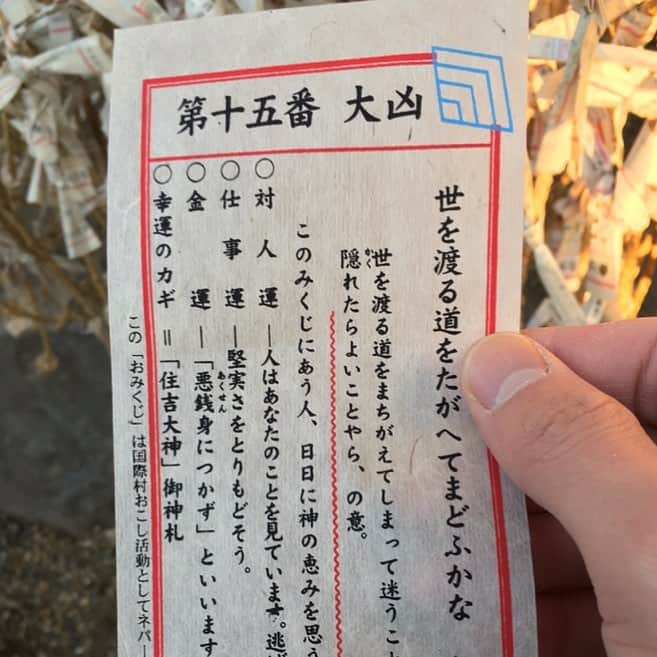 第十五番 大凶
世を渡る道をたがへてまどふかな
世を渡る道をまちがえてしまって迷うこと
隠れたらよいことやら、の意。
このみくじにあう人、日日に神の恵みを思う
○対人運―人はあなたのことを見ています。逃げ
○仕事運―堅実さをとりもどそう。
○金運―「悪銭身につかず」といいます
○幸運のカギ＝「住吉大神」御神札
この「おみくじ」は国際村おこし活動としてネパー